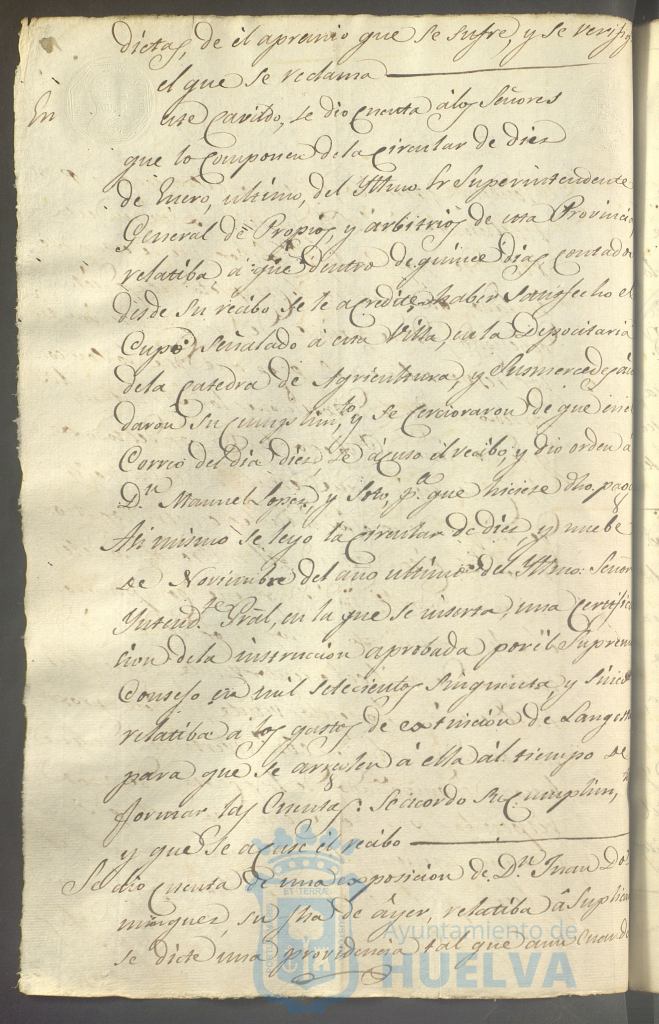 dietas, de él apremio que se sufre, y se verifiq
el que se reclama
En este Cavildo, se dio cuenta álos Señores
que lo componen dela circular de diez
de Enero, ultimo, del Yltmo Sr Superintendente
General de Propios, y árbitrios de esta Provincia
relatiba á que dentro de quince dias contados
desde su recibo, se le acredite haber satisfecho el
Cupo señalado á esta Villa, en la Depocitaria
dela Catedra de Agricultura, y Susmercedes án
daron su cumplimto, y se Cercioraron de que en el
Correo del dia diez, se ácuso el recibo, y dio orden á
Dn. Manuel Lopez, y Soto, pa. que hiciese dho. pago
Asi mismo se leyo la circular de diez, y nuebe
de Noviembre del año ultimo del Yltmo. Señor
Yntendte. Gral, en la que se inserta, una Certifica
cion dela instrucion aprobada por el Supremo
Consejo en mil setecientos sinquenta, y sinco
relatiba á los gastos de extincion de Langosta
para que se arreglen á ella ál tiempo de
formar las Cuentas. Se acordo su Cumplim,
y que se acuse el recibo
Se dio cuenta de una exposicion de Dn. Juan Do
minguez, su fha de áyer, relatiba á Suplicar
se dicte una providencia tal que aun cuando
Ayuntamiento de
HUELVA